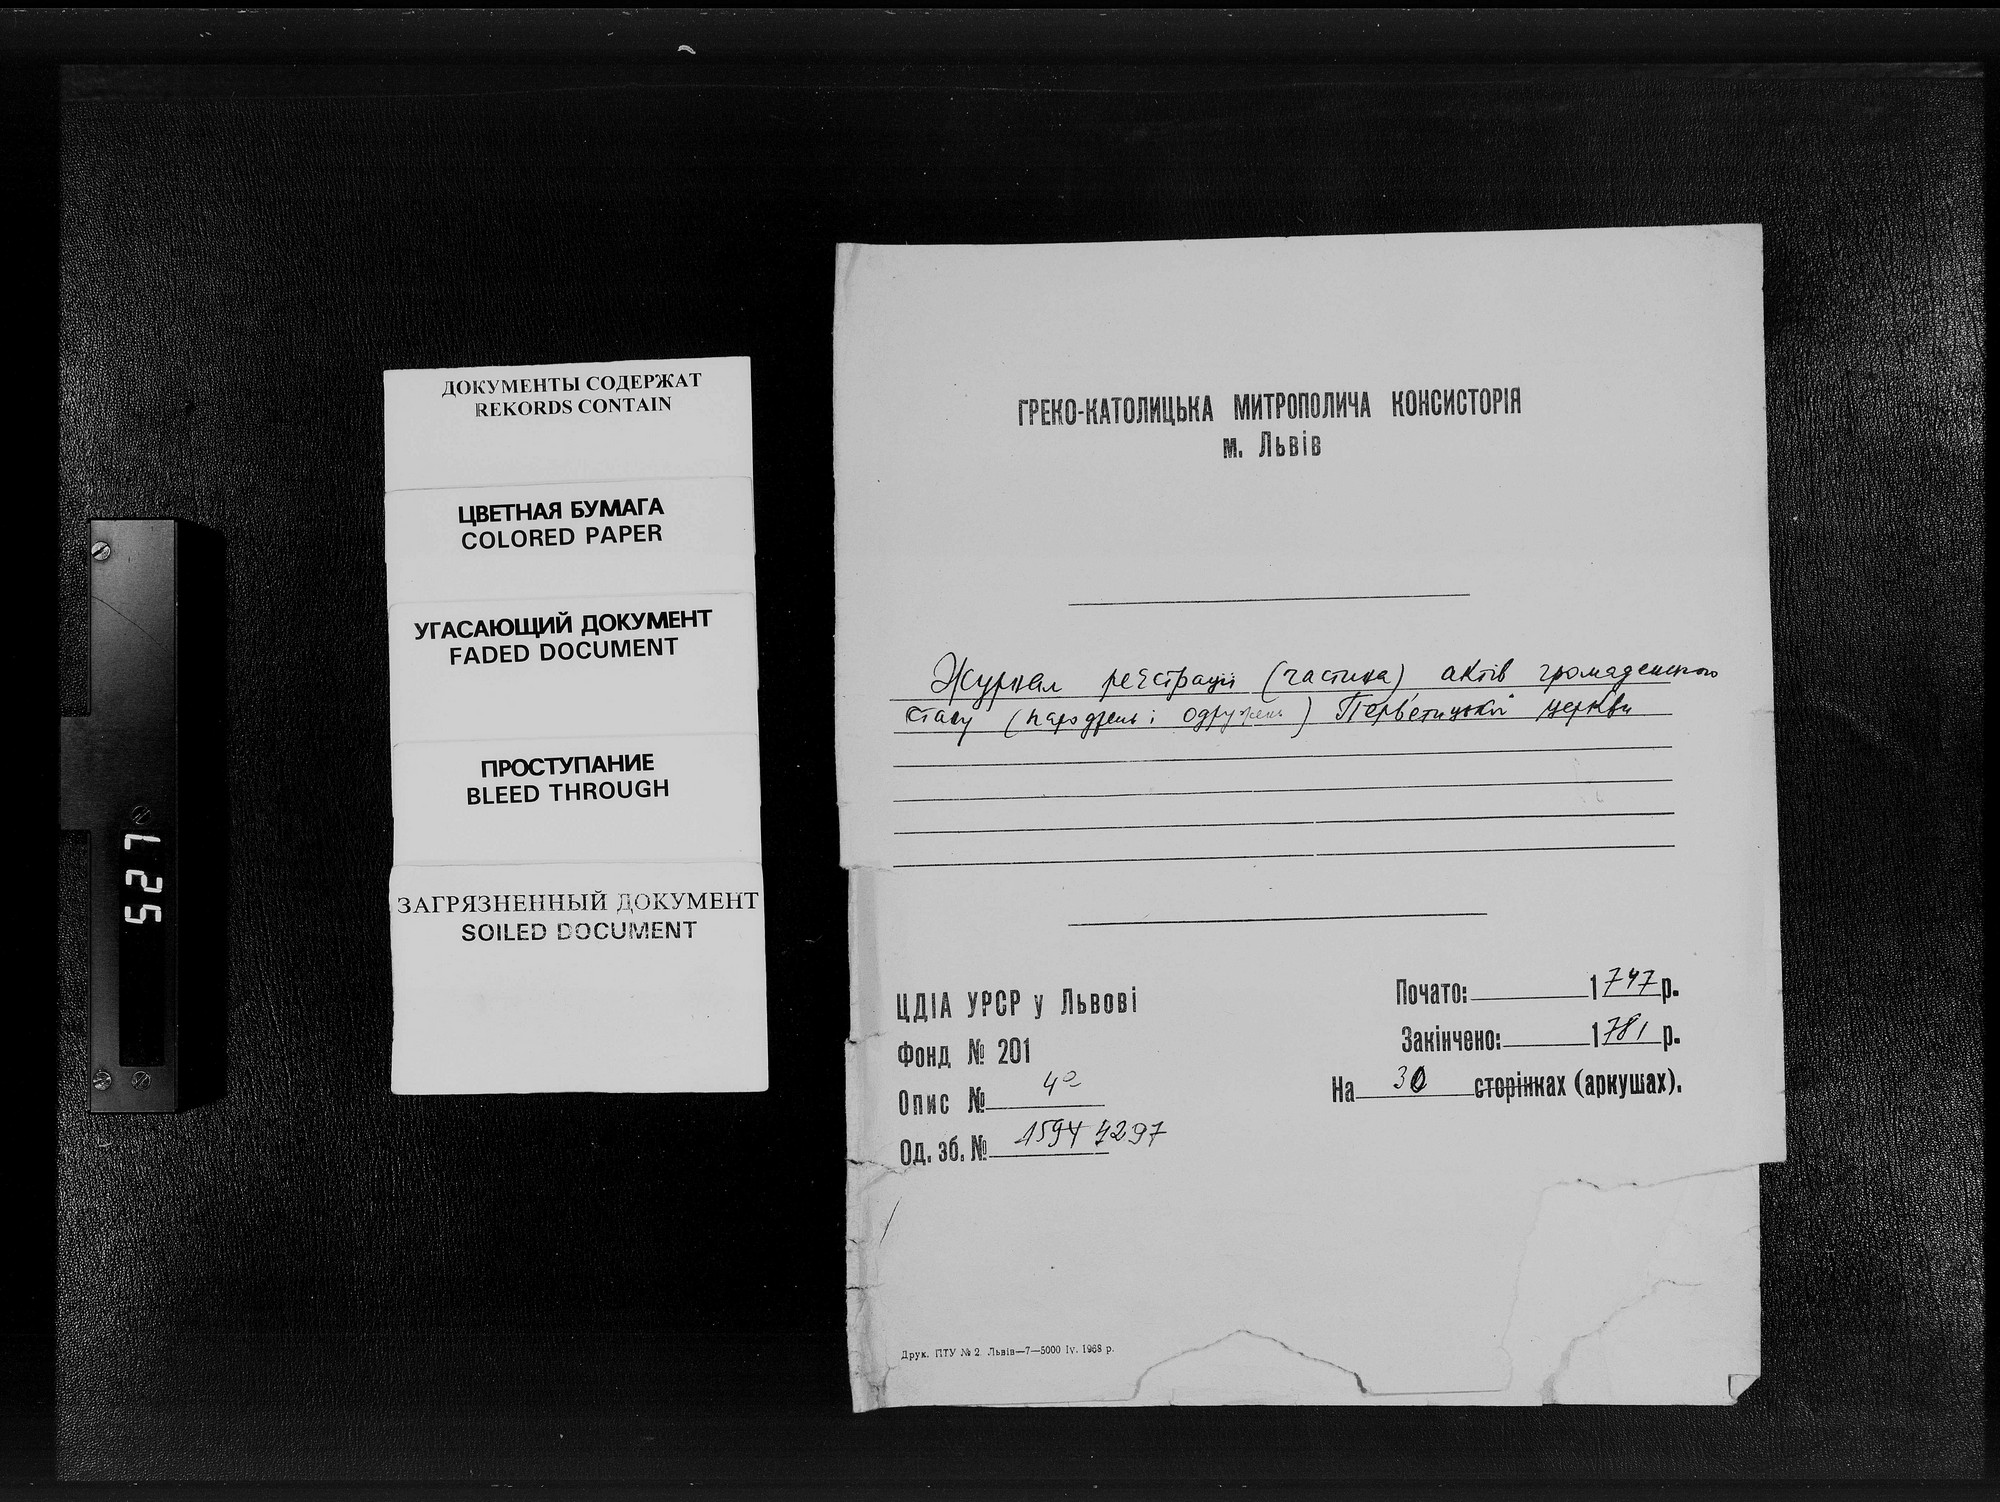 ДОКУМЕНТЫ СОДЕРЖАТ
REKORDS CONTAIN
ЦВЕТНАЯ БУМАГА
COLORED PAPER
УГАСАЮЩИЙ ДОКУМЕНТ
FADED DOCUMENT
ПРОСТУПАНИЕ
BLEED THROUGH
ЗАГРЯЗНЕННЫЙ ДОКУМЕНТ
SOILED DOCUMENT
527
ГРЕКО-КАТОЛИЦЬКА МИТРОПОЛИЧА КОНСИСТОРІЯ
м. Львів
Журнал реєстрації (частина) актів громадського
стану (народжень і одружень) Перв'етицької церкви
ЦДІА УРСР у Львові
Фонд № 201
Опис № 4а
Од. зб. № 1594 4297
Почато: 1747 р.
Закінчено: 1781 р.
На 30 сторінках (аркушах).
Друк. ПТУ № 2. Львів—7—5000 IV. 1968 р.